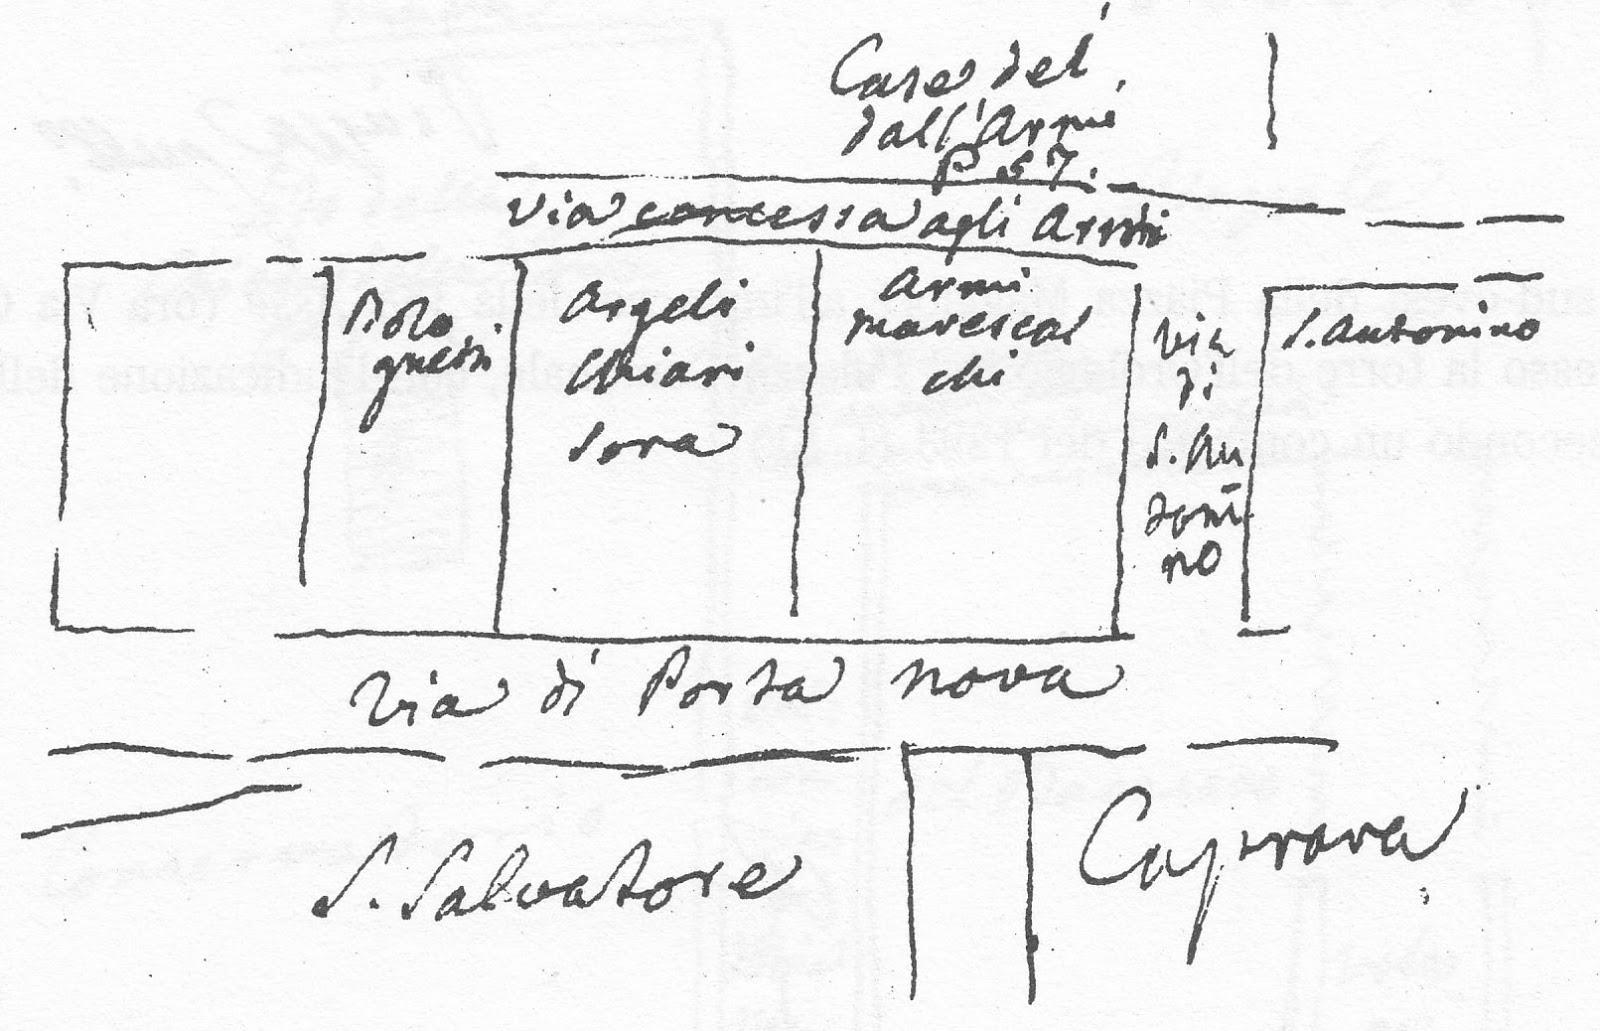 Case del
dall'Armi
P 57.
Via concessa agli Armi
Bolo
gnetti
Argeli
Chiari
sora
Armi
marescal
chi
Via
di
S. An
toni
no
S. Antonino
Via di Porta nova
S. Salvatore
Caprara